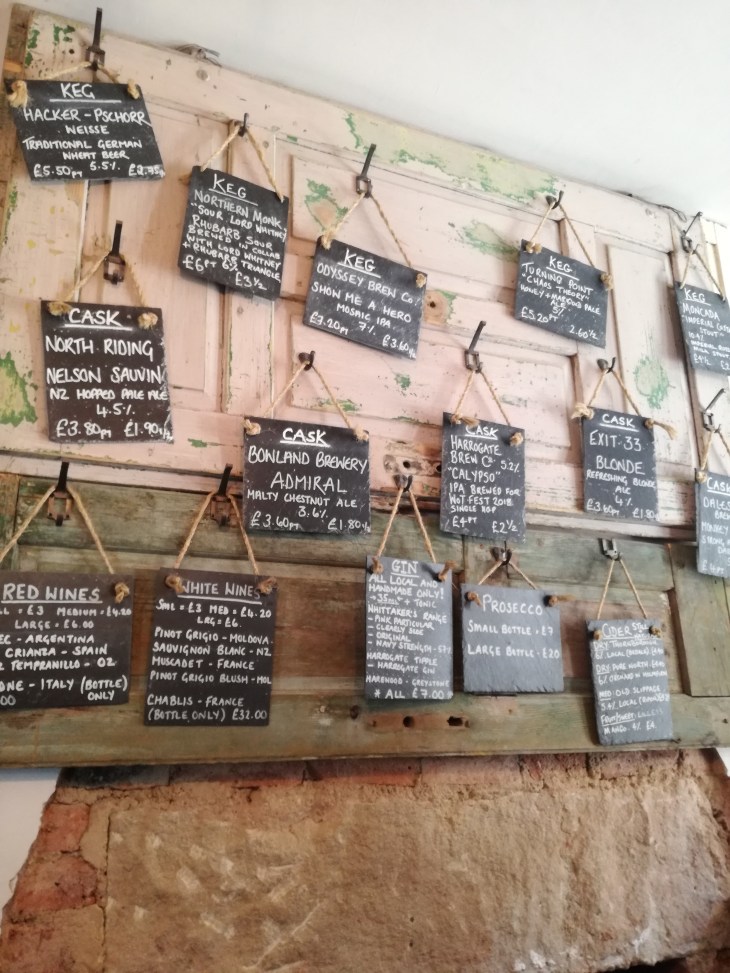 KEG
HACKER-PSCHORR
WEISSE
TRADITIONAL GERMAN
WHEAT BEER
£5.50PT 5.5%
KEG
NORTHERN MONK
"SOUR LORD WHITNEY
RHUBARB SOUR
BREWED IN COLLAB
WITH LORD WHITNEY
+ RHUBARB TRIANGLE
£6PT 6% £3½
KEG
ODYSSEY BREW CO.
SHOW ME A HERO
MOSAIC IPA
7%
£7.20PT £3.60½
KEG
TURNING POINT
"CHAOS THEORY"
ALE
£5.20PT 2.60½
KEG
MONCADA
IMPERIAL
STOUT
MILK STOUT
CASK
NORTH RIDING
NELSON SAUVIN
NZ HOPPED PALE ALE
4.5%
£3.80PT £1.90½
CASK
BONLAND BREWERY
ADMIRAL
MALTY CHESTNUT ALE
3.6%
£3.60PT £1.80½
CASK
HARROGATE
BREW CO. 5.2%
"CALYPSO"
IPA BREWED FOR
WOT FEST 2018
SINGLE HOP
£4PT £2½
CASK
EXIT 33
BLONDE
REFRESHING BLONDE
ALE
4%
£3.60PT £1.80
CASK
DALES
RED WINES
= £3 MEDIUM = £4.20
LARGE = £6.00
- ARGENTINA
CRIANZA - SPAIN
TEMPRANILLO - OZ
- ITALY (BOTTLE)
ONLY
WHITE WINES
SML = £3 MED = £4.20
LRG = £6.
PINOT GRIGIO - MOLDOVA
SAUVIGNON BLANC - NZ
MUSCADET - FRANCE
PINOT GRIGIO BLUSH - MOL
CHABLIS - FRANCE
(BOTTLE ONLY) £32.00
GIN
ALL LOCAL AND
HANDMADE ONLY!
+ TONIC
WHITTAKER'S RANGE
- PINK PARTICULAR
- CLEARLY SLOE
- ORIGINAL
- NAVY STRENGTH
HARROGATE TIPPLE
- HARROGATE GIN
HAREWOOD - GREYSTONE
* ALL £7.00
PROSECCO
SMALL BOTTLE - £7
LARGE BOTTLE - £20
CIDER
DRY
LOCAL
DRY PURE NORTH
MED OLD SLIPPAGE
5.4% LOCAL
MANGO 4% £4